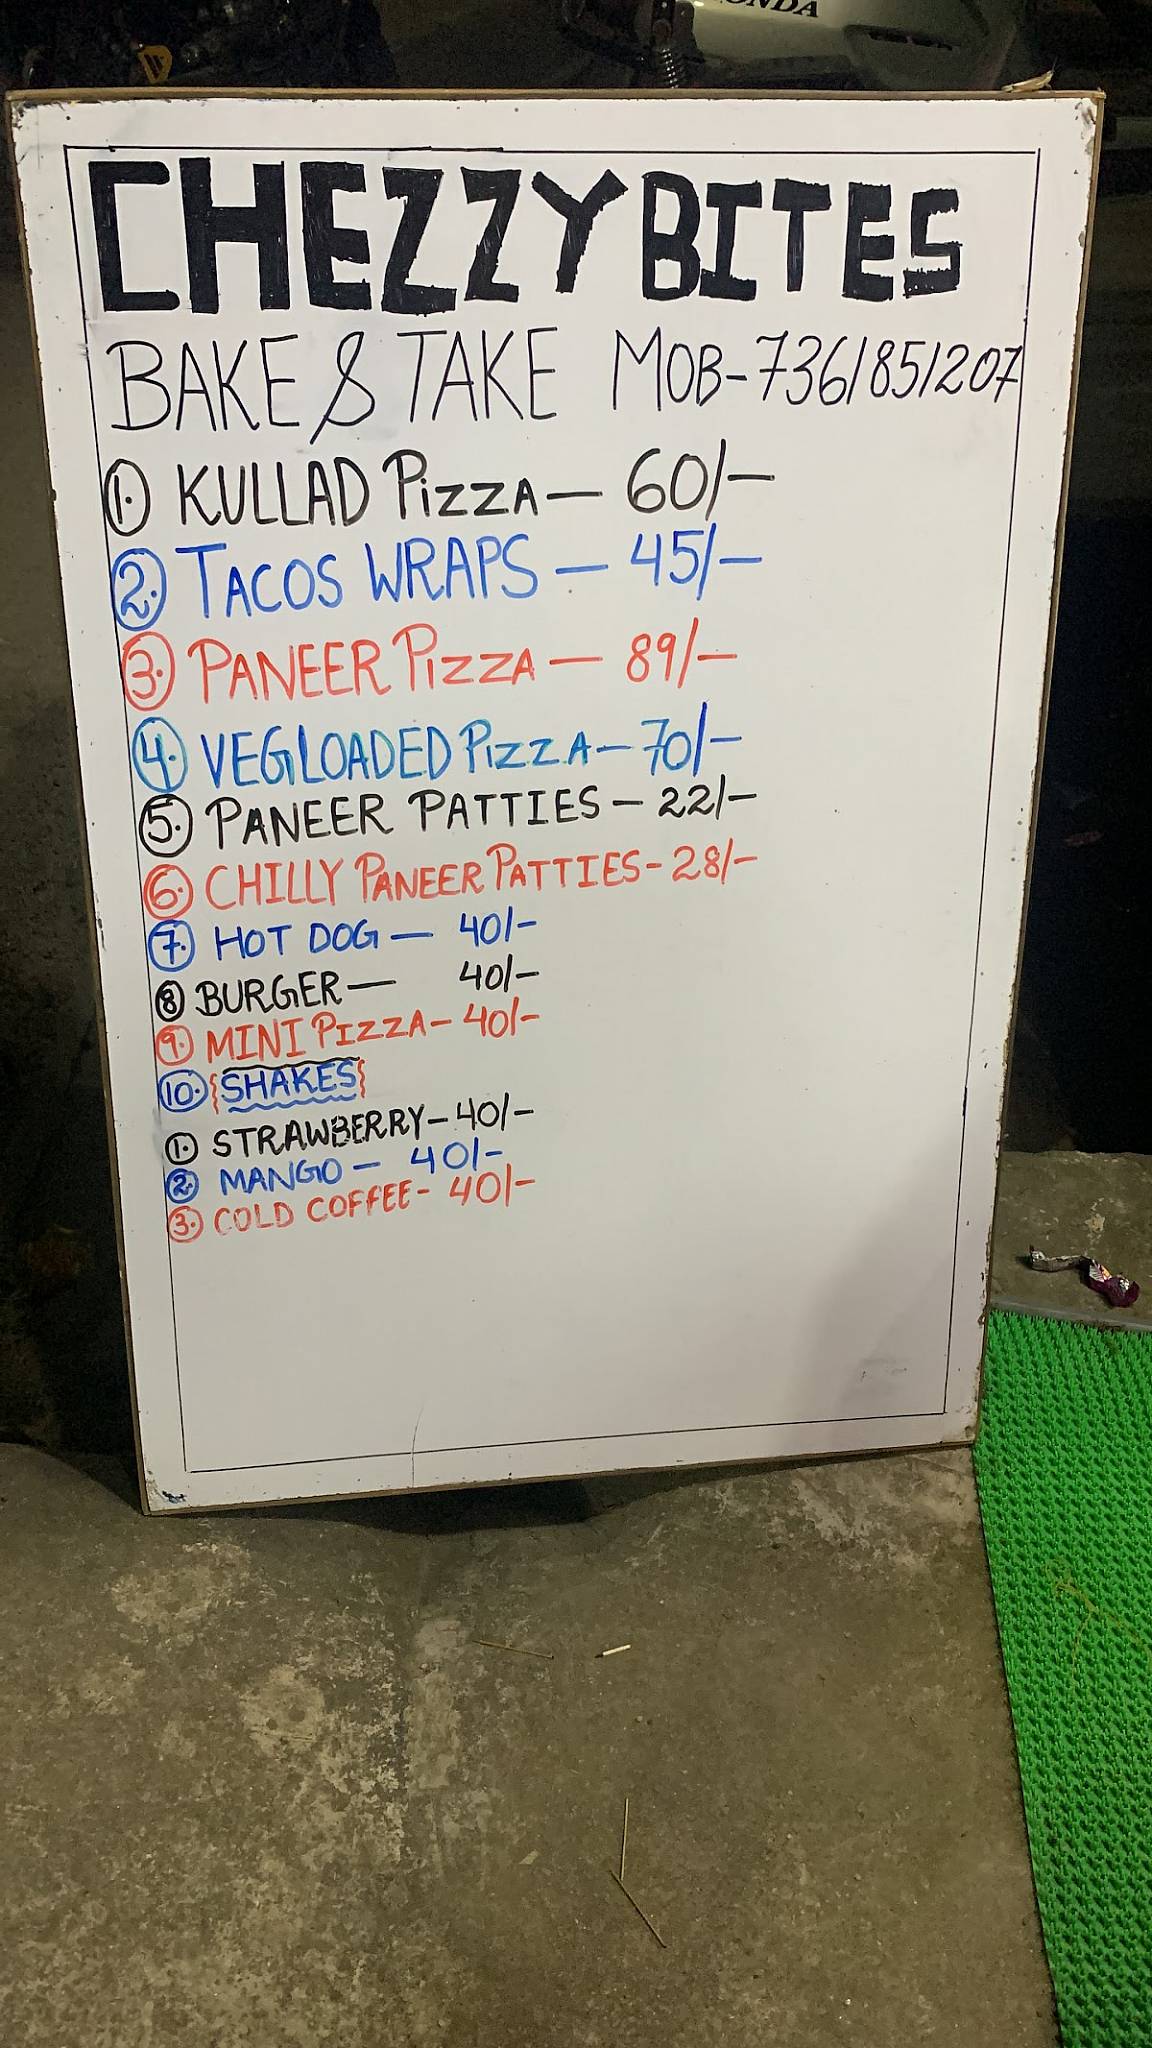 HONDA
CHEZZY BITES
BAKE & TAKE MOB-7361851207
1. KULLAD PIZZA — 60/-
2. TACOS WRAPS — 45/-
3. PANEER PIZZA — 89/-
4. VEG LOADED PIZZA — 70/-
5. PANEER PATTIES — 22/-
6. CHILLY PANEER PATTIES - 28/-
7. HOT DOG — 40/-
8 BURGER — 40/-
9. MINI PIZZA - 40/-
10. {SHAKES}
1. STRAWBERRY - 40/-
2. MANGO — 40/-
3. COLD COFFEE - 40/-